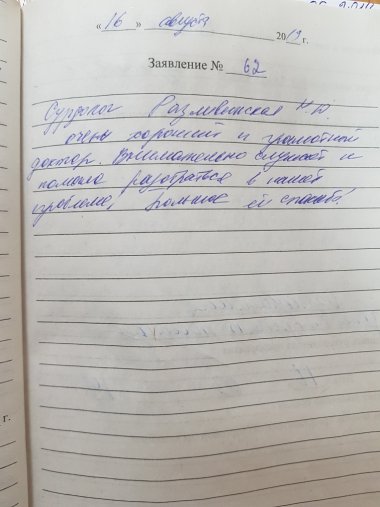 « 16 » августа 2019 г.
Заявление № 62
Сурдолог Н.Ю.
очень хороший и грамотной
доктор. Внимательно слушает и
помогла разобраться в нашей
проблеме, большое ей спасибо!
г.